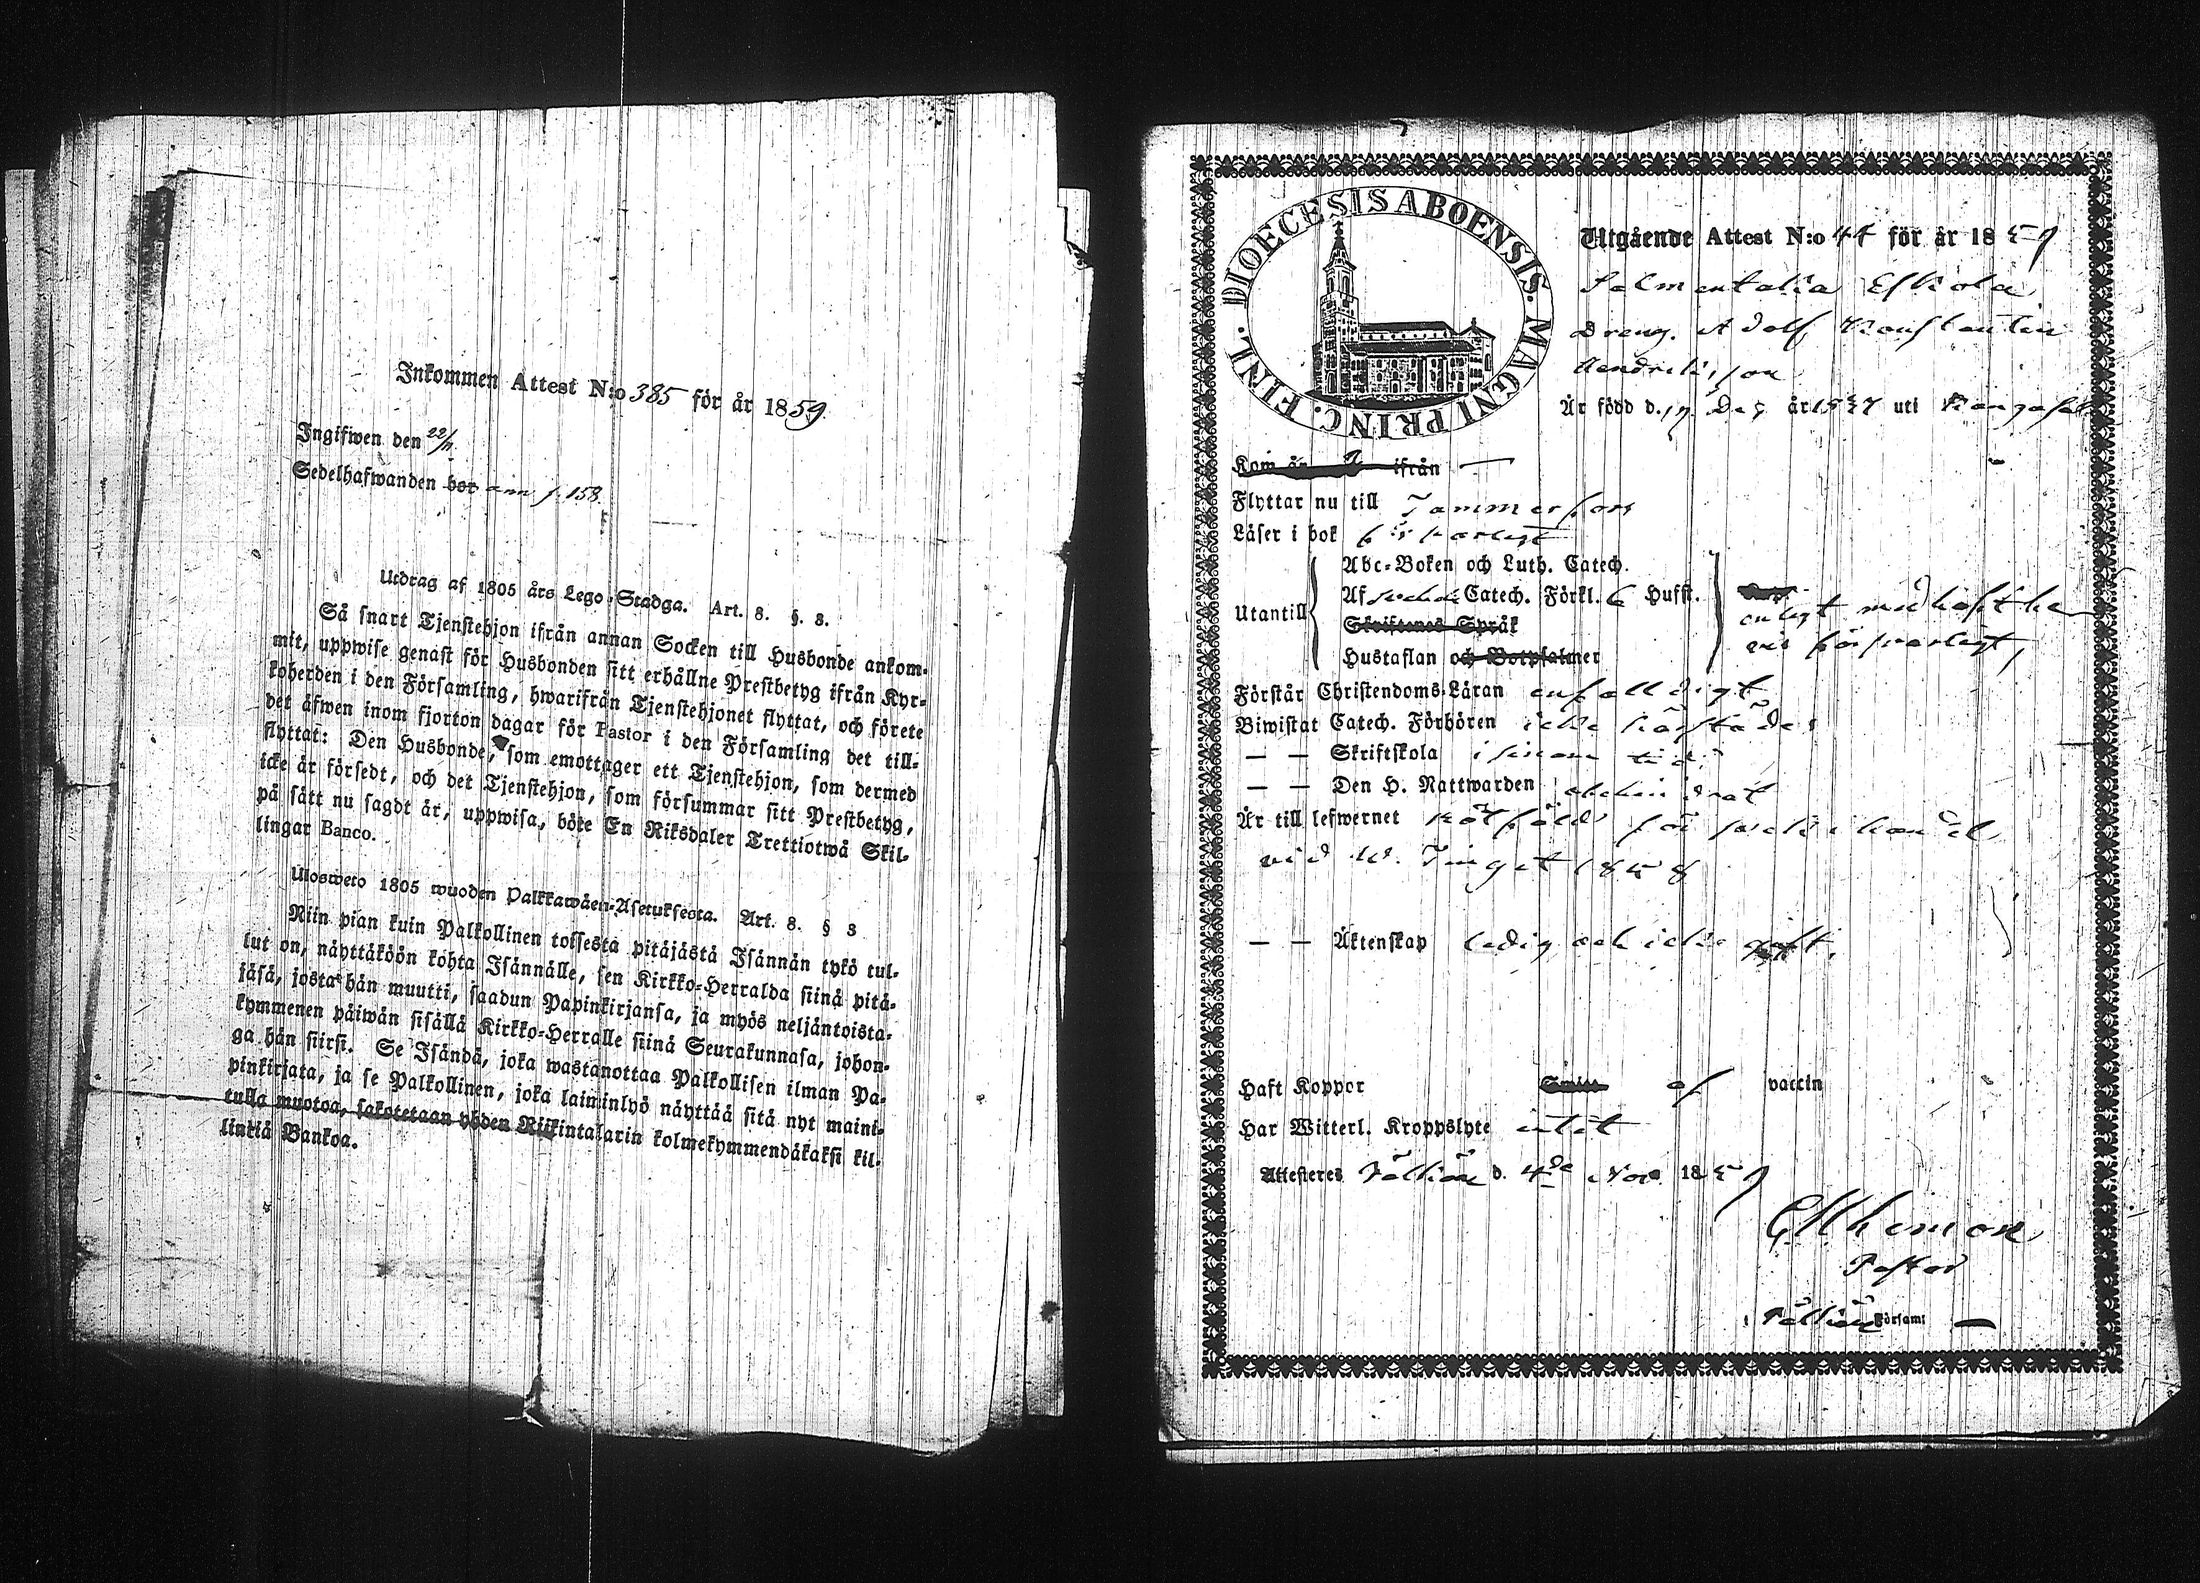 Inkommen Attest N:o 385 för år 1859
Ingifwen den 22/11
Sedelhafwanden bor ann p. 158
Utdrag af 1805 års Lego-Stadga. Art. 8. §. 8.
Så snart Tjenstehjon ifrån annan Socken till Husbonde ankom-
mit, uppwise genast för Husbonden sitt erhållne Prestbetyg ifrån Kyr-
koherden i den Församling, hwarifrån Tjenstehjonet flyttat, och förete
det äfwen inom fjorton dagar för Pastor i den Församling det till-
flyttat: Den Husbonde, som emottager ett Tjenstehjon, som dermed
icke är försedt, och det Tjenstehjon, som försummar sitt Prestbetyg,
på sätt nu sagdt är, uppwisa, böte En Riksdaler Trettiotwå Skil-
lingar Banco.
Ulosweto 1805 wuoden Palkkawäen-Asetuksesta. Art. 8. § 8
Niin pian kuin Palkollinen toisesta pitäjästä Isännän tykö tul-
lut on, näyttäköön kohta Isännälle, sen Kirkko-Herralda siinä pitä-
jäsä, josta hän muutti, saadun Papinkirjansa, ja myös neljäntoista-
kymmenen päiwän sisällä Kirkko-Herralle siinä Seurakunnasa, johon-
ga hän siirsi. Se Isändä, joka wastanottaa Palkollisen ilman Pa-
pinkirjata, ja se Palkollinen, joka laiminlyö näyttää sitä nyt maini-
tulla muotoa, sakotetaan yhden Riikintalarin kolmekymmendäkaksi kil-
linkiä Bankoa.
DIOECESIS ABOENSIS. MAGNI PRINC. FINL.
Utgående Attest N:o 44 för år 1859
Salmentaka Eskola
Dreng. Adolf Konstantin
Hendriksson
Är född d. 17 Dec år 1837 uti Kangasala
Kom år ifrån
Flyttar nu till Tammerfors
Läser i bok förswarligt
Abc-Boken och Luth. Catech.
Utantill Af Catech. Förkl. 6 Hufst.
Skriftenes Språk
Hustaflan och Botpsalmer
enligt
förswarligt
Förstår Christendoms-Läran enfalldigt
Biwistat Catech. Förhören icke
— — Skriftskola i sinom tid
— — Den H. Nattwarden
Är till lefwernet för
vid W. Tinget 1858
— — Äktenskap ledig och icke
Haft Koppor Smitt. af vaccin
Har Witterl. Kroppslyte intet
Attesteres Pälkäne d. 4de Nov 1859
Pastor
i Pälkäne Församl